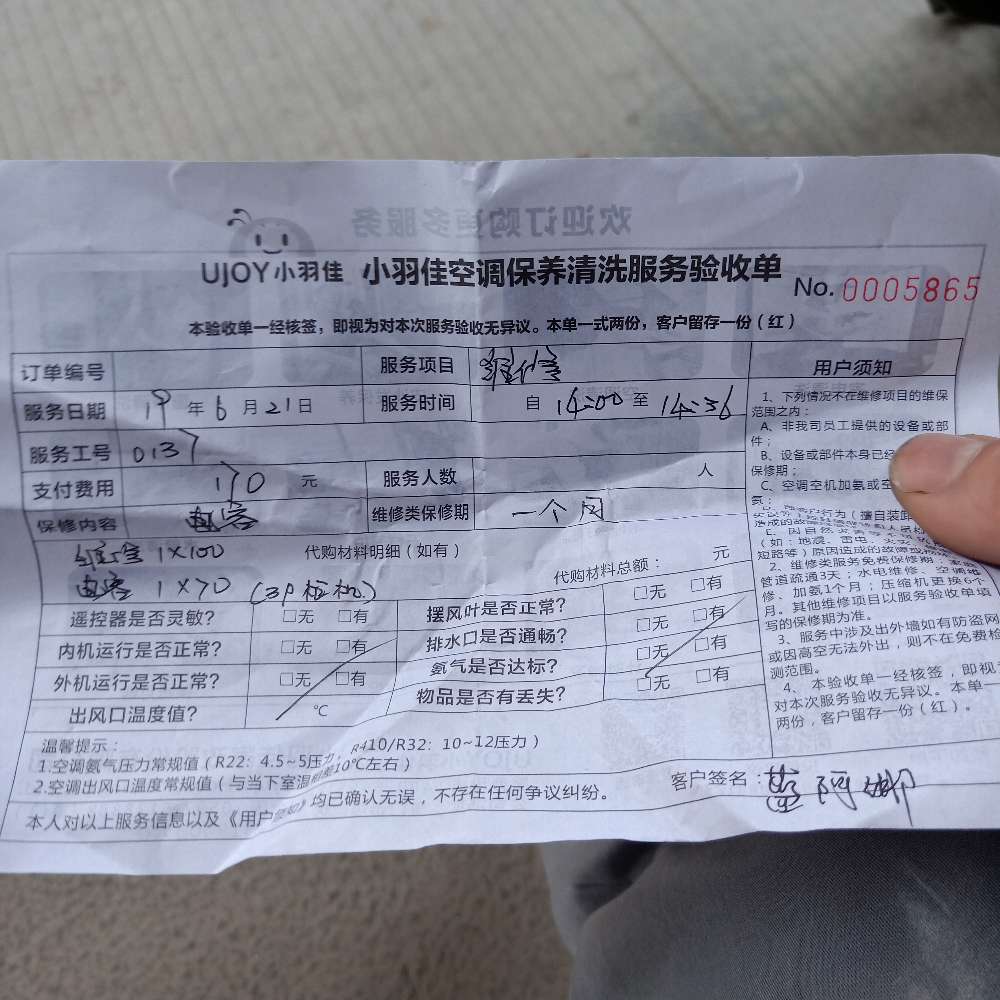 欢迎订购更多服务
UJOY小羽佳 小羽佳空调保养清洗服务验收单 No.0005865
本验收单一经核签，即视为对本次服务验收无异议。本单一式两份，客户留存一份（红）
订单编号 服务项目 维修
服务日期 19年6月21日 服务时间 自 14:00 至 14:36
服务工号 0137
支付费用 170 元 服务人数 人
保修内容 电容 维修类保修期 一个月
维修 1×100 代购材料明细（如有） 代购材料总额： 元
电容 1×70 （3P柜机）
遥控器是否灵敏？ □无 □有 摆风叶是否正常？ □无 □有
内机运行是否正常？ □无 □有 排水口是否通畅？ □无 □有
外机运行是否正常？ □无 □有 氨气是否达标？ □无 □有
出风口温度值？ ℃ 物品是否有丢失？ □无 □有
用户须知
1、下列情况不在维修项目的维保
范围之内：
A、非我司员工提供的设备或部
件；
B、设备或部件本身已经
保修期；
C、空调空机加氨或空
氨；
（如：地震、雷电、
短路等）原因造成的故障或
2、维修类服务免费保修期：
管道疏通3天；水电维修、空调维
修、加氨1个月；压缩机更换6个
月。其他维修项目以服务验收单填
写的保修期为准。
3、服务中涉及出外墙如有防盗网
或因高空无法外出，则不在免费检
测范围。
4、本验收单一经核签，即视
对本次服务验收无异议。本单一
两份，客户留存一份（红）。
温馨提示：
1.空调氨气压力常规值（R22：4.5~5压力，R410/R32：10~12压力）
2.空调出风口温度常规值（与当下室温相差10℃左右）
本人对以上服务信息以及《用户须知》均已确认无误，不存在任何争议纠纷。
客户签名： 阿娜